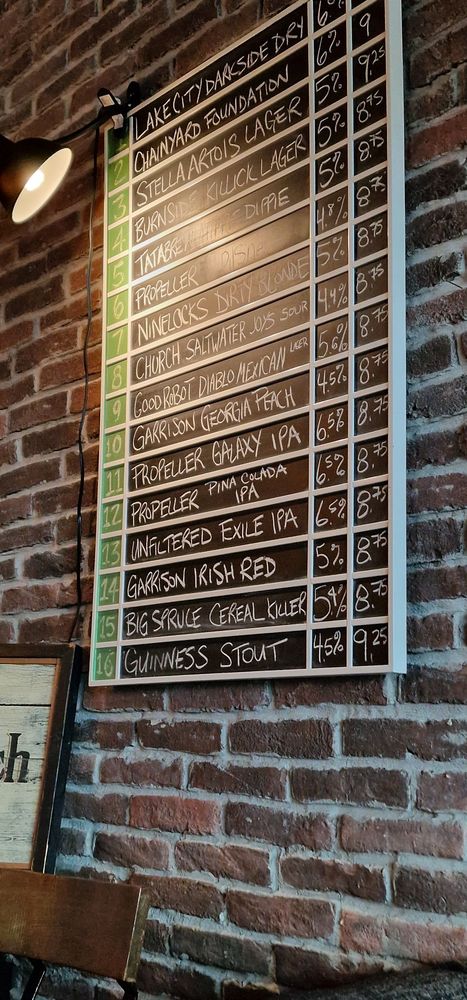 LAKE CITY DARKSIDE DRY
2 CHAINYARD FOUNDATION 6% 9
3 STELLA ARTOIS LAGER 5% 9.25
4 BURNSIDE KILLICK LAGER 5% 8.75
5 TATABREW DIPPIE 5% 8.75
6 PROPELLER 4.8% 8.75
7 NINELOCKS DIRTY BLONDE 5% 8.75
8 CHURCH SALTWATER JOYS SOUR 4.4% 8.75
9 GOOD ROBOT DIABLO MEXICAN LAGER 5.6% 8.75
10 GARRISON GEORGIA PEACH 4.5% 8.75
11 PROPELLER GALAXY IPA 6.5% 8.75
12 PROPELLER PINA COLADA IPA 6.5% 8.75
13 UNFILTERED EXILE IPA 6.5% 8.75
14 GARRISON IRISH RED 5% 8.75
15 BIG SPRUCE CEREAL KILLER 5.4% 8.75
16 GUINNESS STOUT 4.5% 9.25
ch